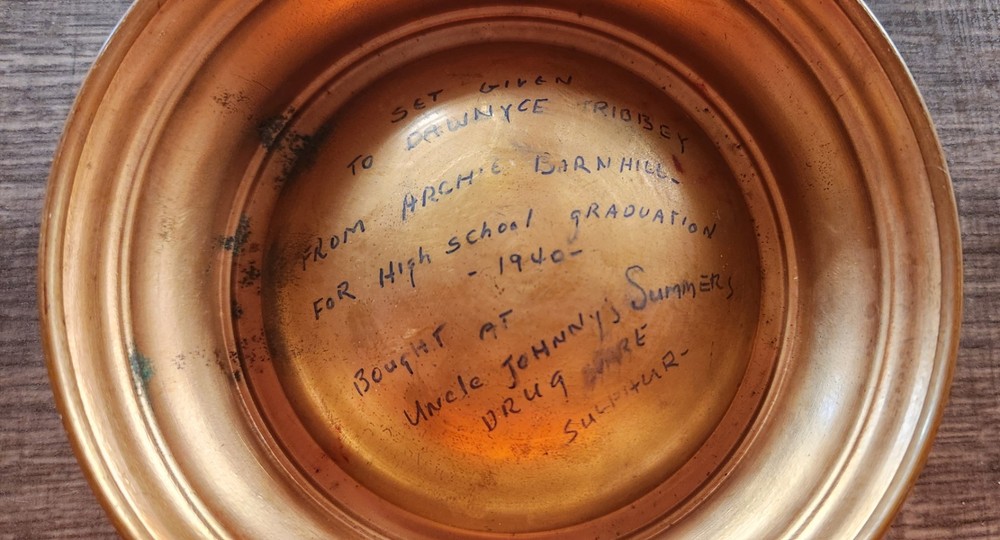 SET GIVEN
TO DAWNYCE TRIBBEY
FROM ARCHIE BARNHILL
FOR HIgh School gRADUATION
- 1940 -
BOUgHT AT
UNCle JOHNNy's SUMMERS
DRUg
SULPHUR -